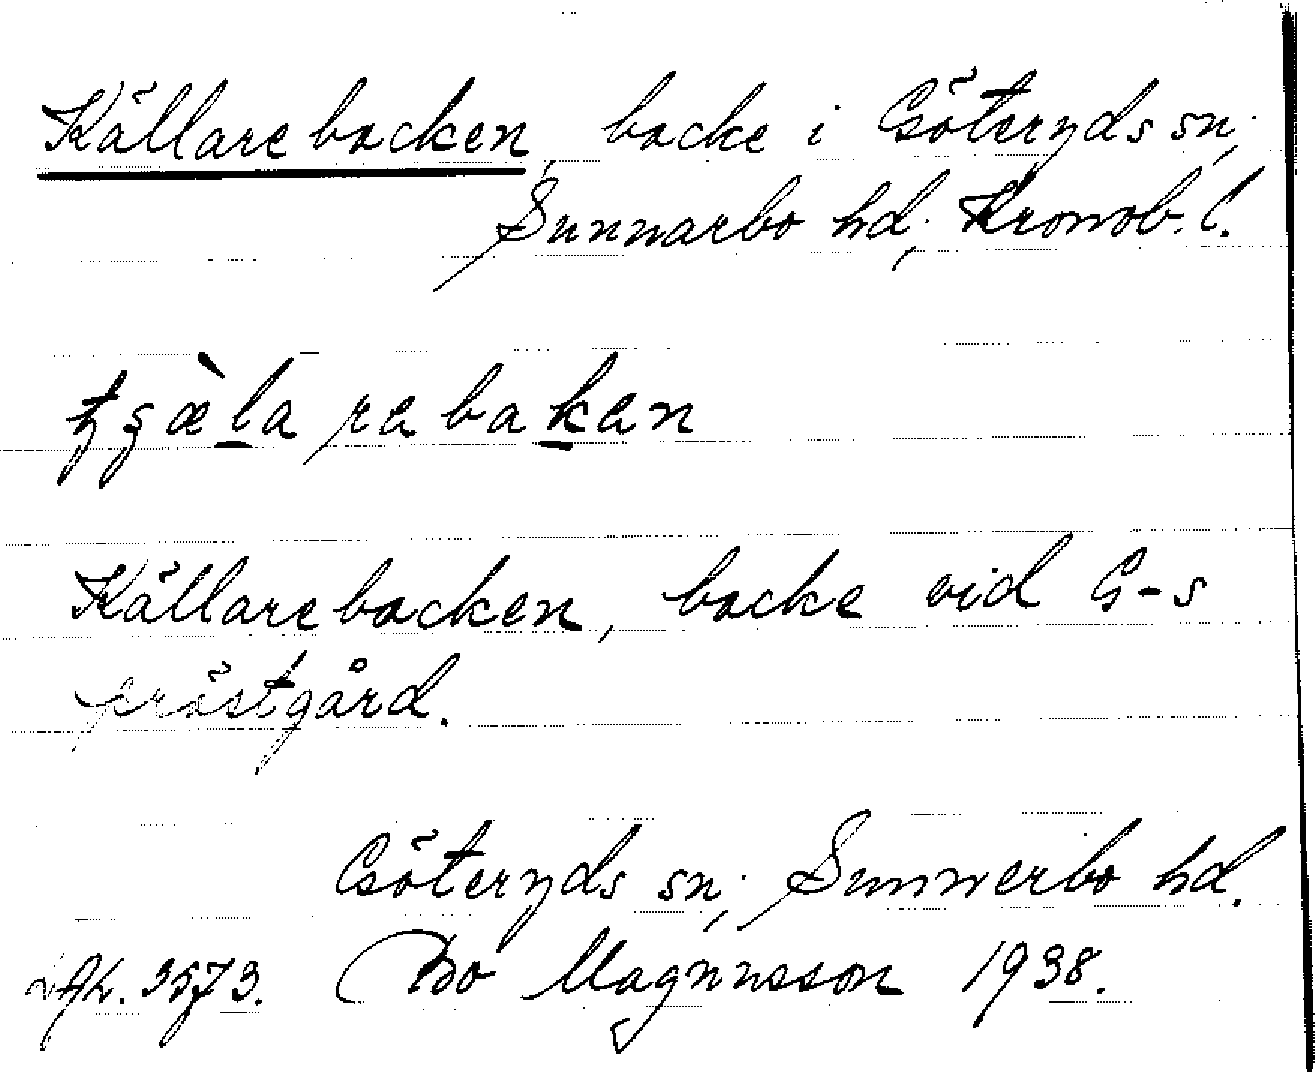 Källarebacken, backe i Göteryds sn;
Sunnarbo hd; Kronob. l.
Källarebacken, backe vid G-s
prästgård.
Göteryds sn; Sunnerbo hd.
3573. Bo Magnusson 1938.